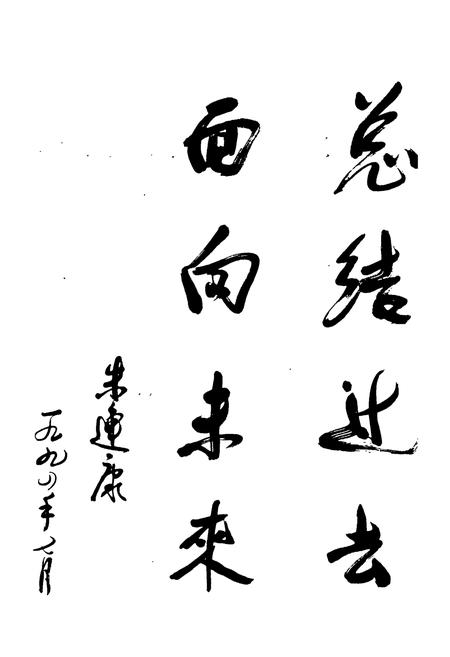 总结过去
面向未來
朱連康
一九九〇年七月